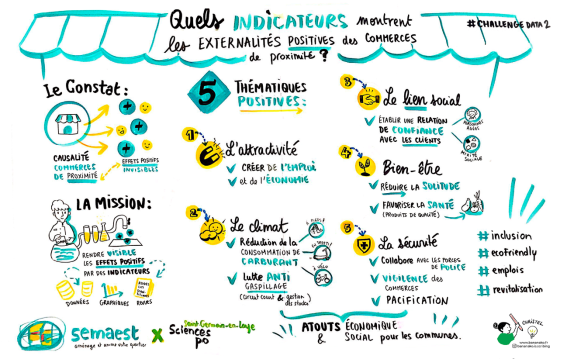 Quels INDICATEURS montrent
# CHALLENGE DATA 2
les EXTERNALITÉS POSITIVES des COMMERCES
de proximité ?
le Constat :
CAUSALITÉ
COMMERCES
DE PROXIMITÉ
EFFETS POSITIFS
INVISIBLES
LA MISSION :
RENDRE VISIBLE
LES EFFETS POSITIFS
PAR DES INDICATEURS
DONNÉES
GRAPHIQUES
5 THEMATIQUES
POSITIVES :
1
L'attractivité
CRÉER DE L'EMPLOI
et de l'ÉCONOMIE
2
Le climat
Réduction de la
CONSOMMATION DE
CARBURANT
lutte ANTI
GASPILLAGE
(circuit court & gestion
des stocks)
3
Le lien social
ÉTABLIR UNE RELATION
DE CONFIANCE
AVEC LES CLIENTS
PERSONNES
AGÉES
4
Bien-être
RÉDUIRE LA SOLITUDE
FAVORISER LA SANTÉ
(PRODUITS DE QUALITÉ)
5
La sécurité
Collabore AVEC LES FORCES
DE POLICE
VIGILENCE des
COMMERCES
PACIFICATION
# inclusion
# ecofriendly
# emplois
# revitalisation
semaest
aménage et anime votre quartier
X
Sciences
po
Saint-Germain-en-Laye
ATOUTS ÉCONOMIQUE
& SOCIAL pour les communes.